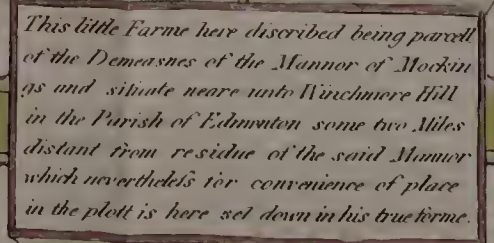 This little Farme here discribed being parcell
of the Demeasnes of the Mannor of Mockin
gs and situate neare unto Winchmore Hill
in the Parish of Edmonton some two Miles
distant from residue of the said Mannor
which nevertheless for convenience of place
in the plott is here set down in his true forme.